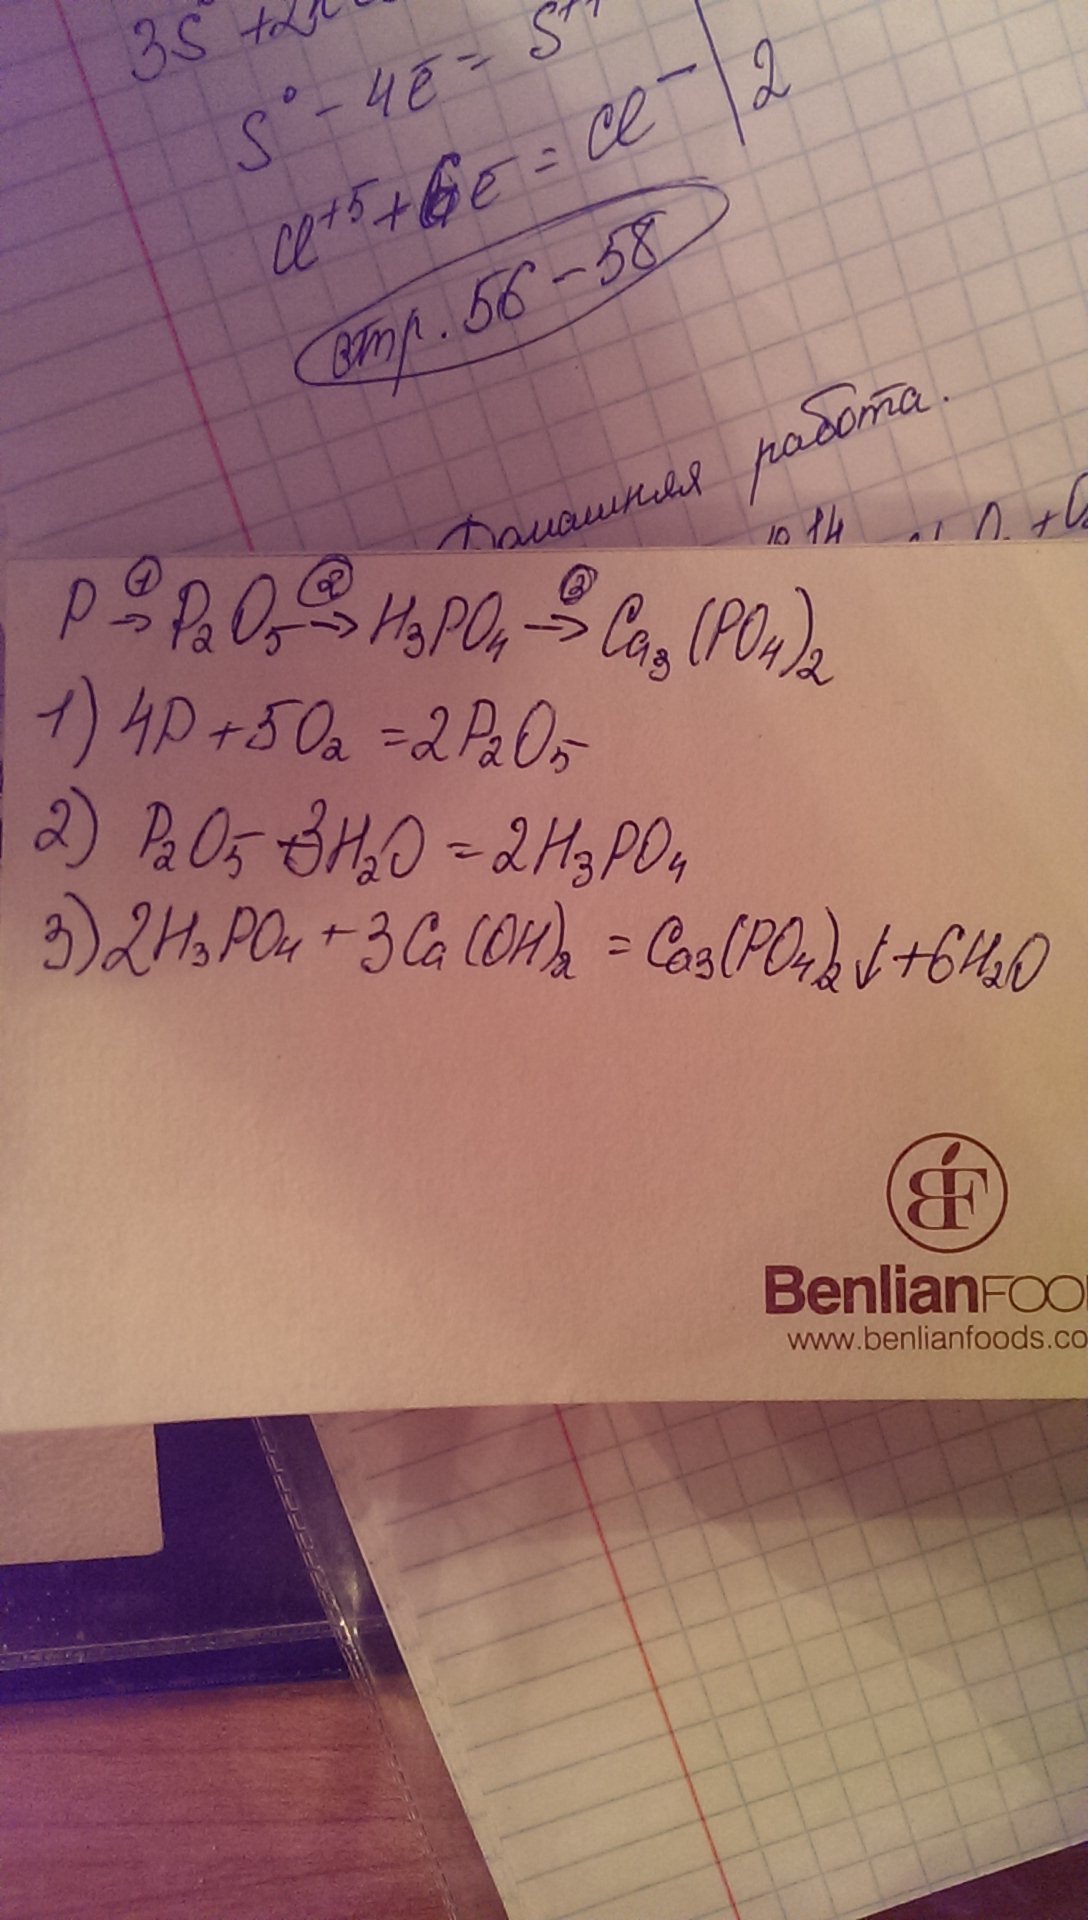 3S⁰ +2
S⁰ - 4ē = S⁺⁴
Cl⁺⁵ + 6ē = Cl⁻ | 2
стр. 56-58
Домашняя работа.
14
P →① P₂O₅ →② H₃PO₄ →③ Ca₃(PO₄)₂
1) 4P + 5O₂ = 2P₂O₅
2) P₂O₅ + 3H₂O = 2H₃PO₄
3) 2H₃PO₄ + 3Ca(OH)₂ = Ca₃(PO₄)₂↓ + 6H₂O
BF
BenlianFOO
www.benlianfoods.co